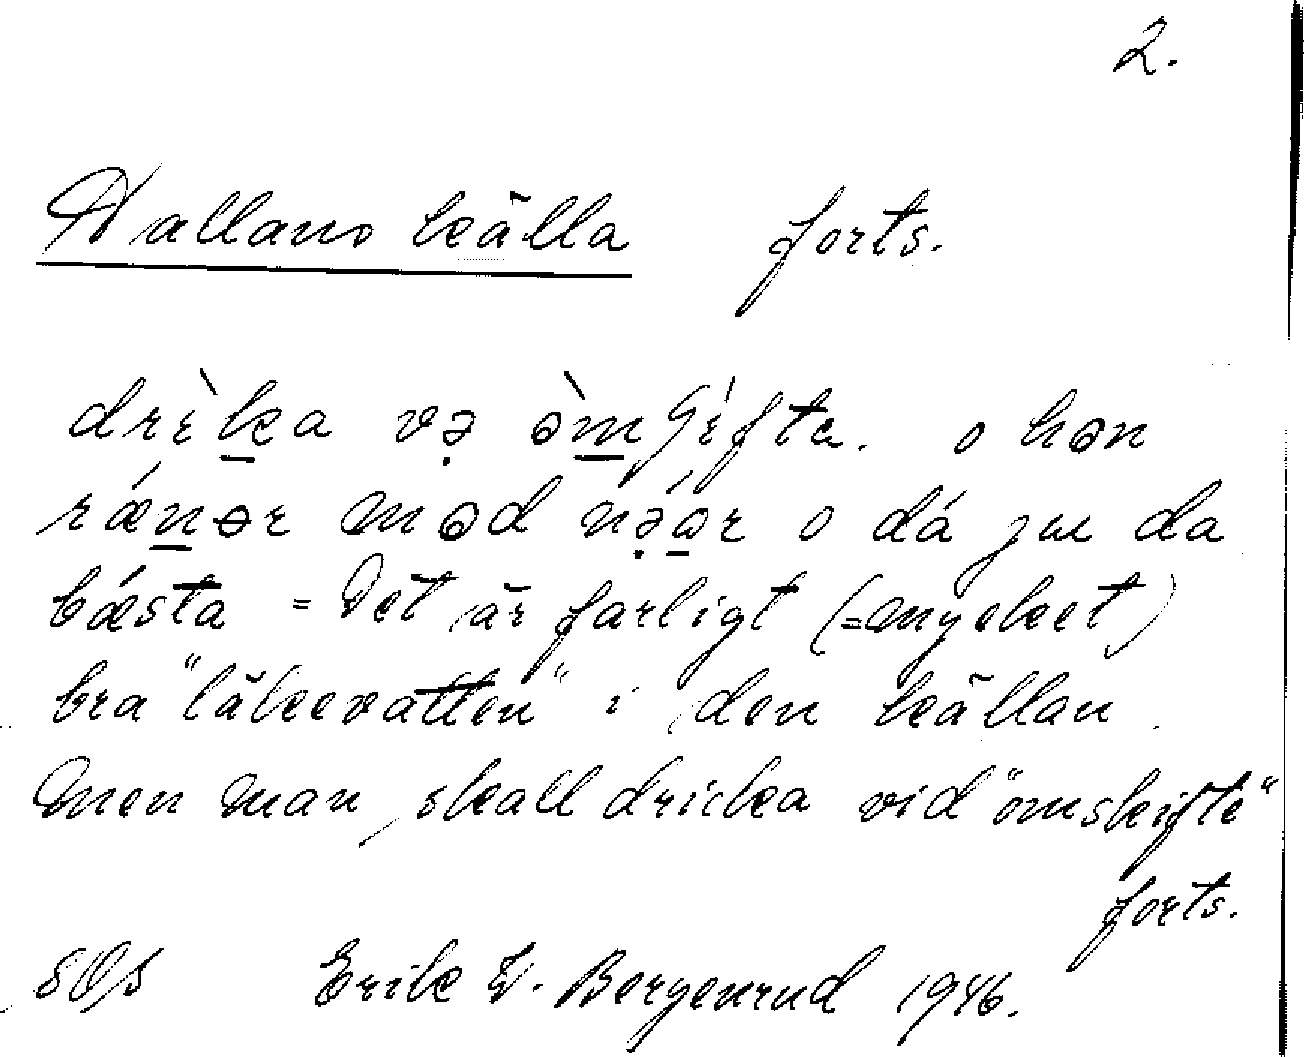 2.
Wallans källa forts.
drìka və òmʃifte. o hon
rǽnər məd nə́ər o dá ju da
bǽsta = Det är farligt (= mycket)
bra "läkevatten" i den källan.
Men man skall dricka vid "omskifte"
forts.
Erik V. Bergenrud 1946.